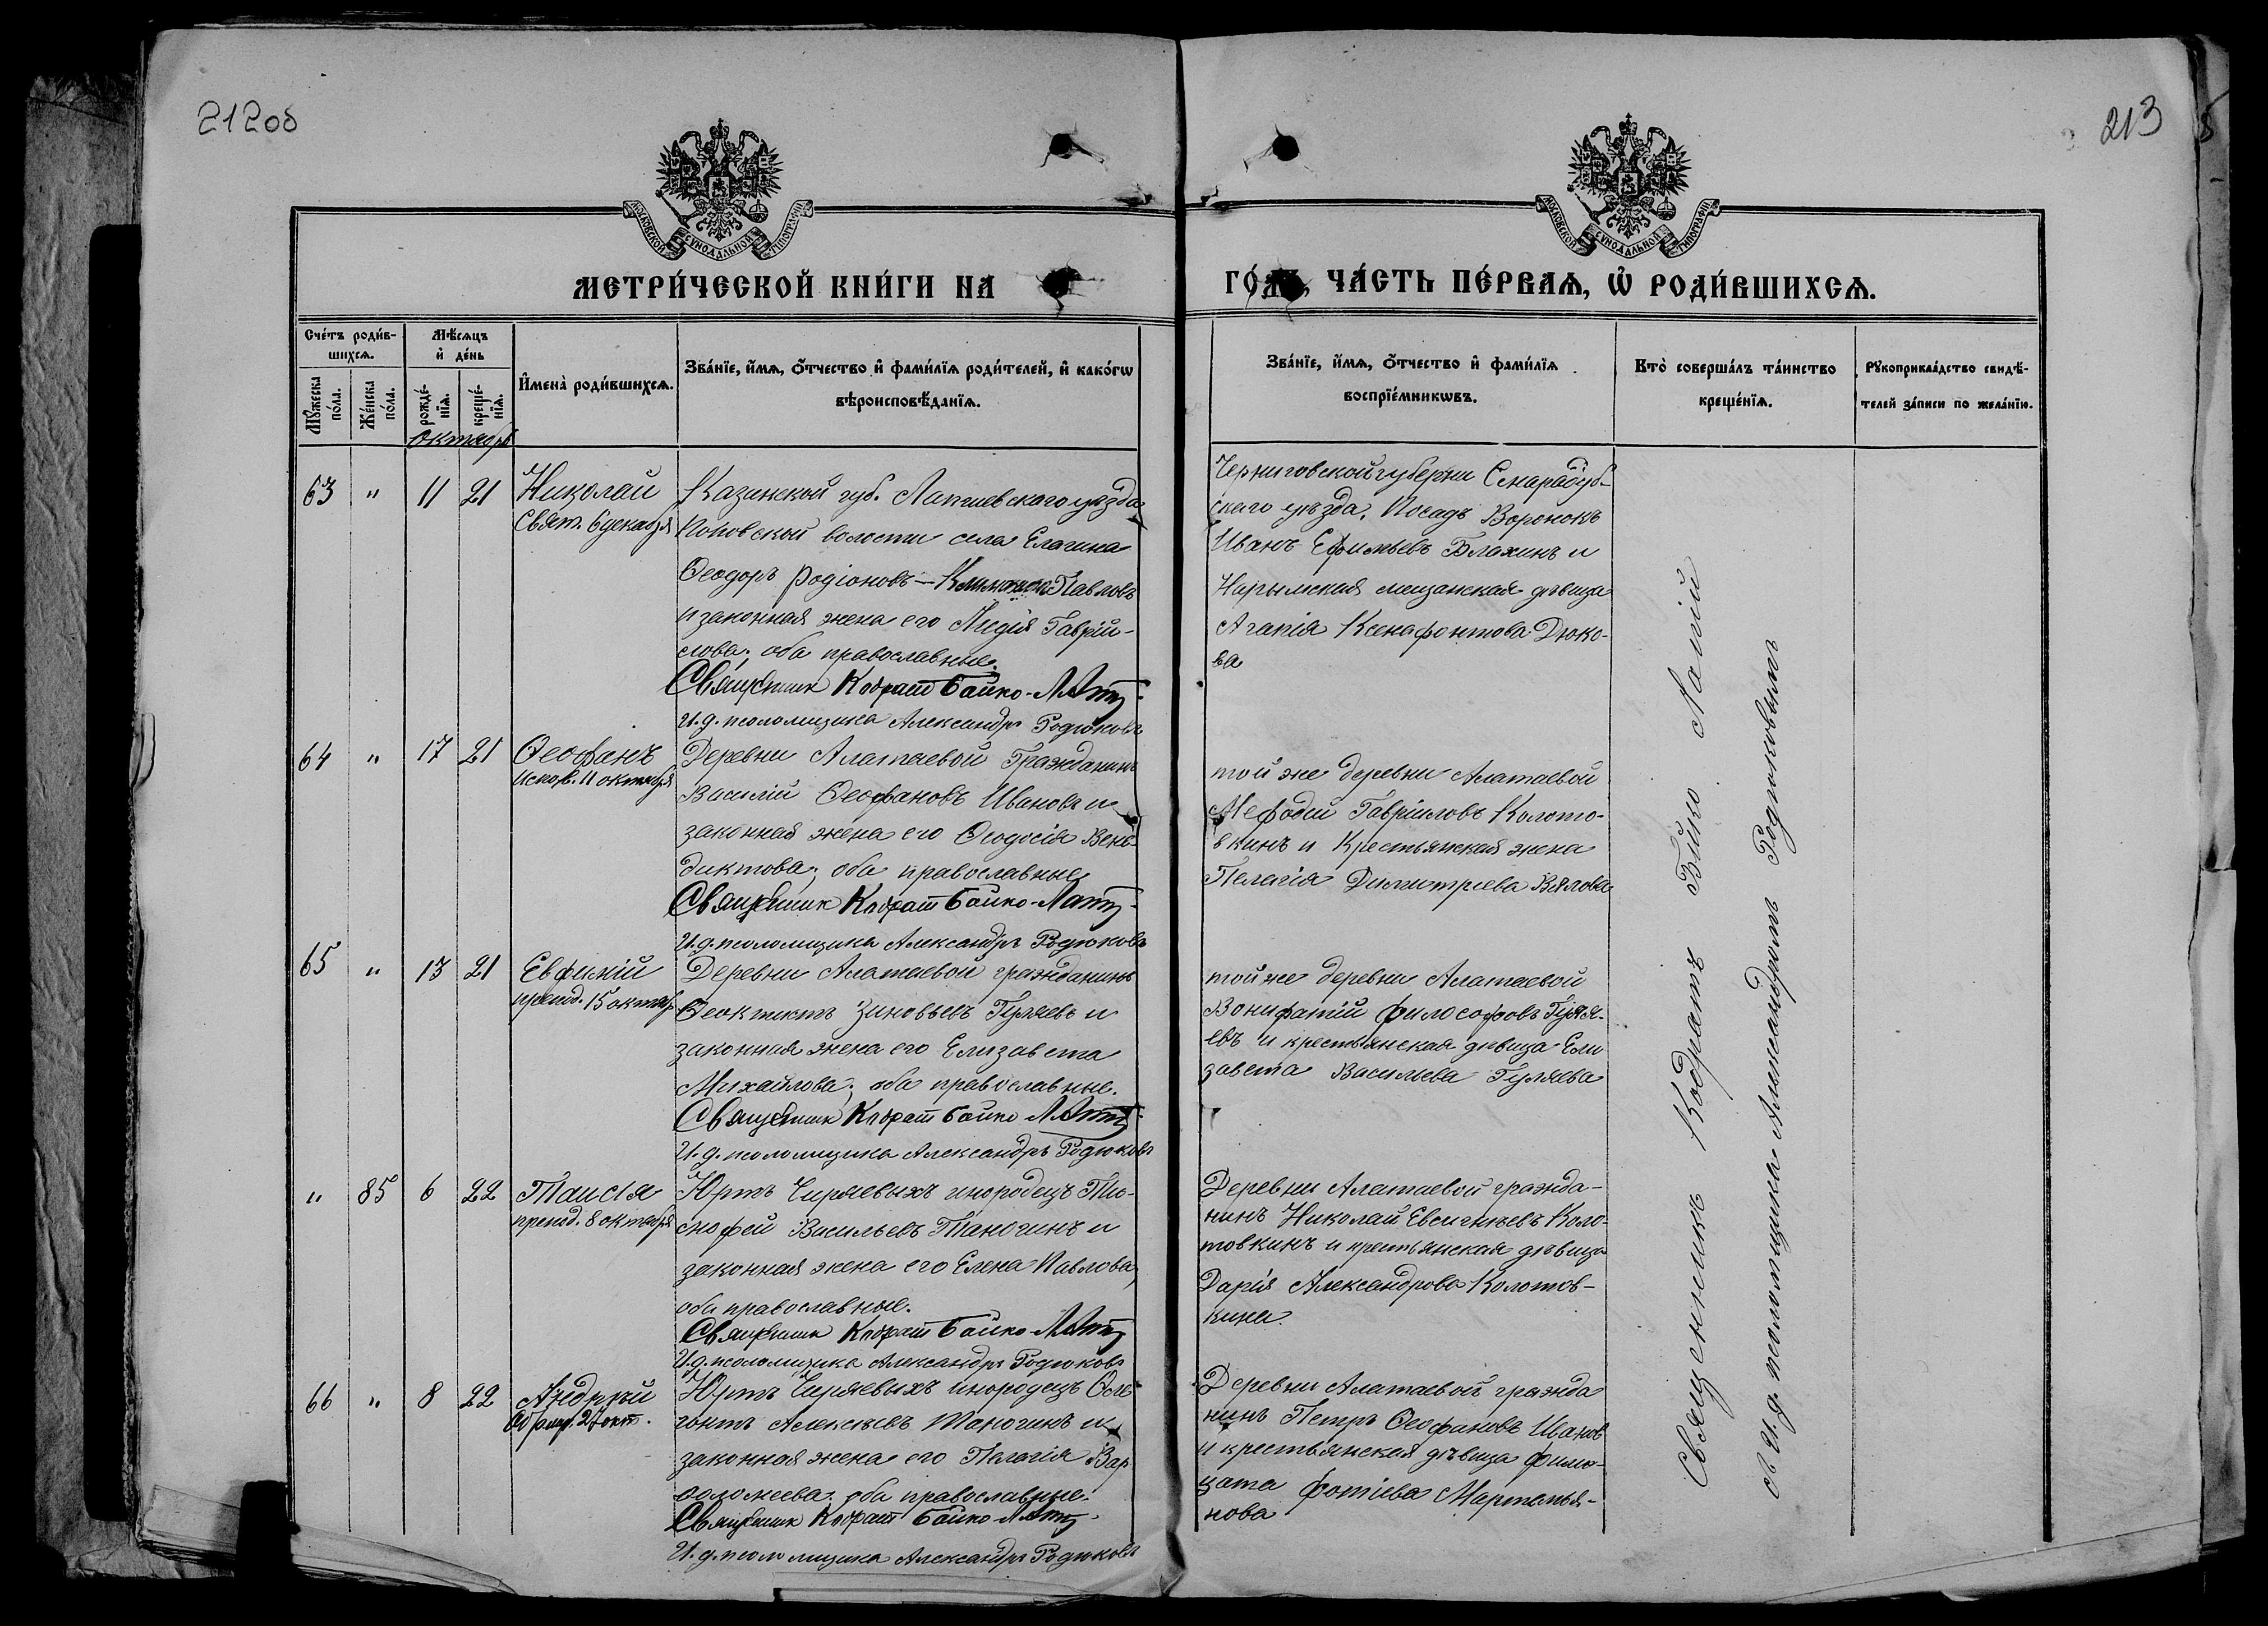 212об
213
МОСКОВСКОЙ СУНОДАЛЬНОЙ ТИПОГРАФІИ
МОСКОВСКОЙ СУНОДАЛЬНОЙ ТИПОГРАФІИ
МЕТРИ́ЧЕСКОЙ КНИ́ГИ НА
ГО́ДЪ, ЧА́СТЬ ПЕ́РВАѦ, Ѽ РОДИ́ВШИХСѦ.
Сче́тъ роди́в-
шихсѧ.
Мꙋ́жеска
по́ла.
Же́нска
по́ла.
Мѣ́сѧцъ
и҆ де́нь
рожде́-
нїѧ.
креще́-
нїѧ.
И҆мена̀ роди́вшихсѧ.
Зва́нїе, и҆́мѧ, ѻ҆́тчество и҆ фами́лїѧ роди́телей, и҆ како́гѡ
вѣроисповѣ́данїѧ.
Зва́нїе, и҆́мѧ, ѻ҆́тчество и҆ фами́лїѧ
воспрїе́мникѡвъ.
Кто̀ соверша́лъ та́инство
креще́нїѧ.
Рꙋкоприкла́дство свидѣ́-
телей за́писи по жела́нїю.
октябрь
63 " 11 21 Николай
Свят. 6 декабря
Казанской губ. Лаишевскаго уезда
волости села Елагина
Ѳеодоръ Родіоновъ — Павловъ
и законная жена его Лидія Гаврiи-
лова; оба православные.
Священник Кодрат Бойко-Лапій
И.д. псаломщика Александръ Родюковъ
Черниговской губерни Старадуб-
скаго уѣзда, Посадъ Воронокъ
Иванъ Ефимьевъ Блахинъ и
Нарымская мещанская дѣвица
Агапія Ксенафонтова Дюко-
ва
64 " 17 21 Ѳеофанъ
испов. 11 октября
Деревни Алатаевой Гражданинъ
Василій Ѳеофановъ Ивановъ и
законная жена его Ѳеодосія Вене-
диктова; оба православные
Священник Кодрат Бойко-Лапій
И.д. псаломщика Александръ Родюковъ
той же деревни Алатаевой
Мефодій Гавріиловъ Колото-
вкинъ и Крестьянская жена
Пелагія Димитріева Вялова
65 " 13 21 Евфимій
препод. 15 октябр
Деревни Алатаевой гражданинъ
Ѳеоктистъ Зиновьевъ Гуляевъ и
законная жена его Елизавета
Михайлова; оба православные.
Священник Кодрат Бойко Лапій
И.д. псаломщика Александръ Родюковъ
той же деревни Алатаевой
Вонифатій Философовъ Гуля-
евъ и крестьянская дѣвица Ели
завета Васильева Гуляева
" 85 6 22 Таисія
препод. 8 октября
Юртъ Чиряевыхъ инородецъ Ти-
мофей Васильевъ Таногинъ и
законная жена его Елена Павлова,
оба православные.
Священник Кодрат Бойко-Лапій
И.д. псаломщика Александръ Родюковъ
Деревни Алатаевой гражда-
нинъ Николай Евсигнѣевъ Коло-
товкинъ и крестьянская дѣвица
Дарія Александрова Колотов-
кина.
66 " 8 22 Андрей
27 окт.
Юртъ Чиряевыхъ инородецъ
Алексѣевъ Таногинъ и
законная жена его Пелагія Вар
ѳоломеева; оба православные.
Священник Кодрат Бойко-Лапій
И.д. псаломщика Александръ Родюковъ
Деревни Алатаевой гражда
нинъ Петръ Ѳеофановъ Иванов
и крестьянская дѣвица Фили-
цата Фотіева Мартемья-
нова
Священникъ Кодратъ Бойко Лапій
съ И.д. псаломщика Александромъ Родюковымъ